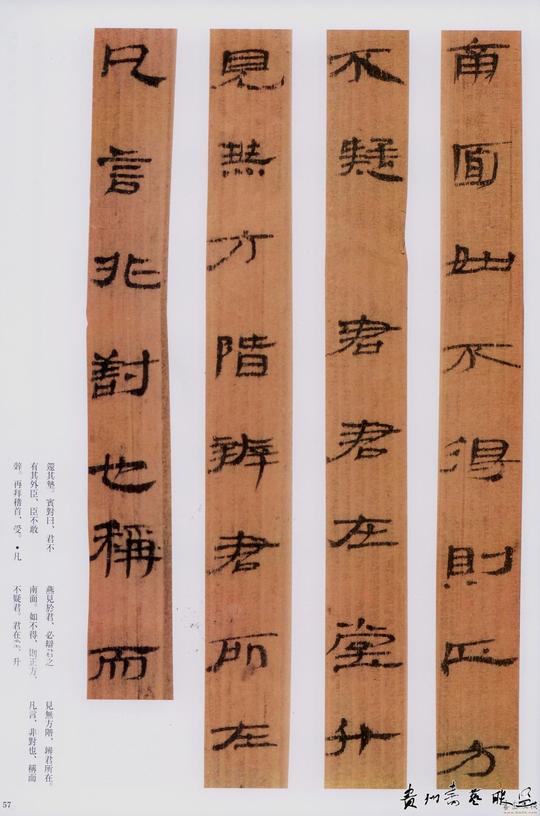 南面如不得則正方
不疑君君在堂升
見無方階辨君所在
凡言非對也稱而
還其摯。賓對曰、君不
有其外臣、臣不敢
辭。再拜稽首、受。•凡
燕見於君、必辯君之
南面。如不得、則正方、
不疑君。君在堂、升
見無方階、辨君所在。
凡言、非對也、稱而
57